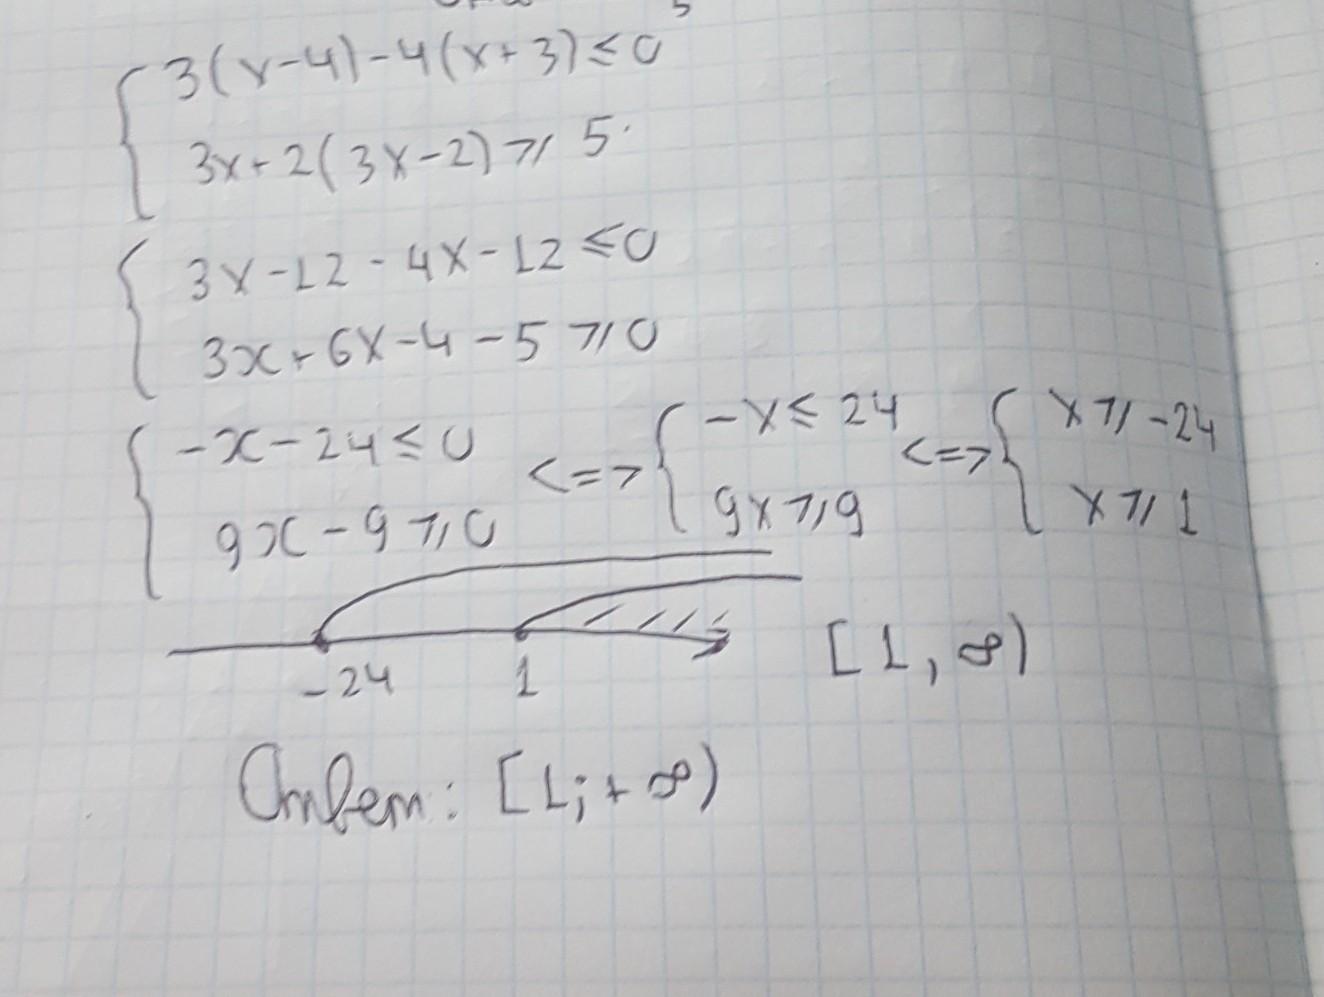 3(x-4)-4(x+3)≤0
3x+2(3x-2)≥5
3x-12-4x-12≤0
3x+6x-4-5≥0
-x-24≤0 <=> -x≤24 <=> x≥-24
9x-9≥0 9x≥9 x≥1
-24 1 [1, ∞)
Ответ: [1;+∞)